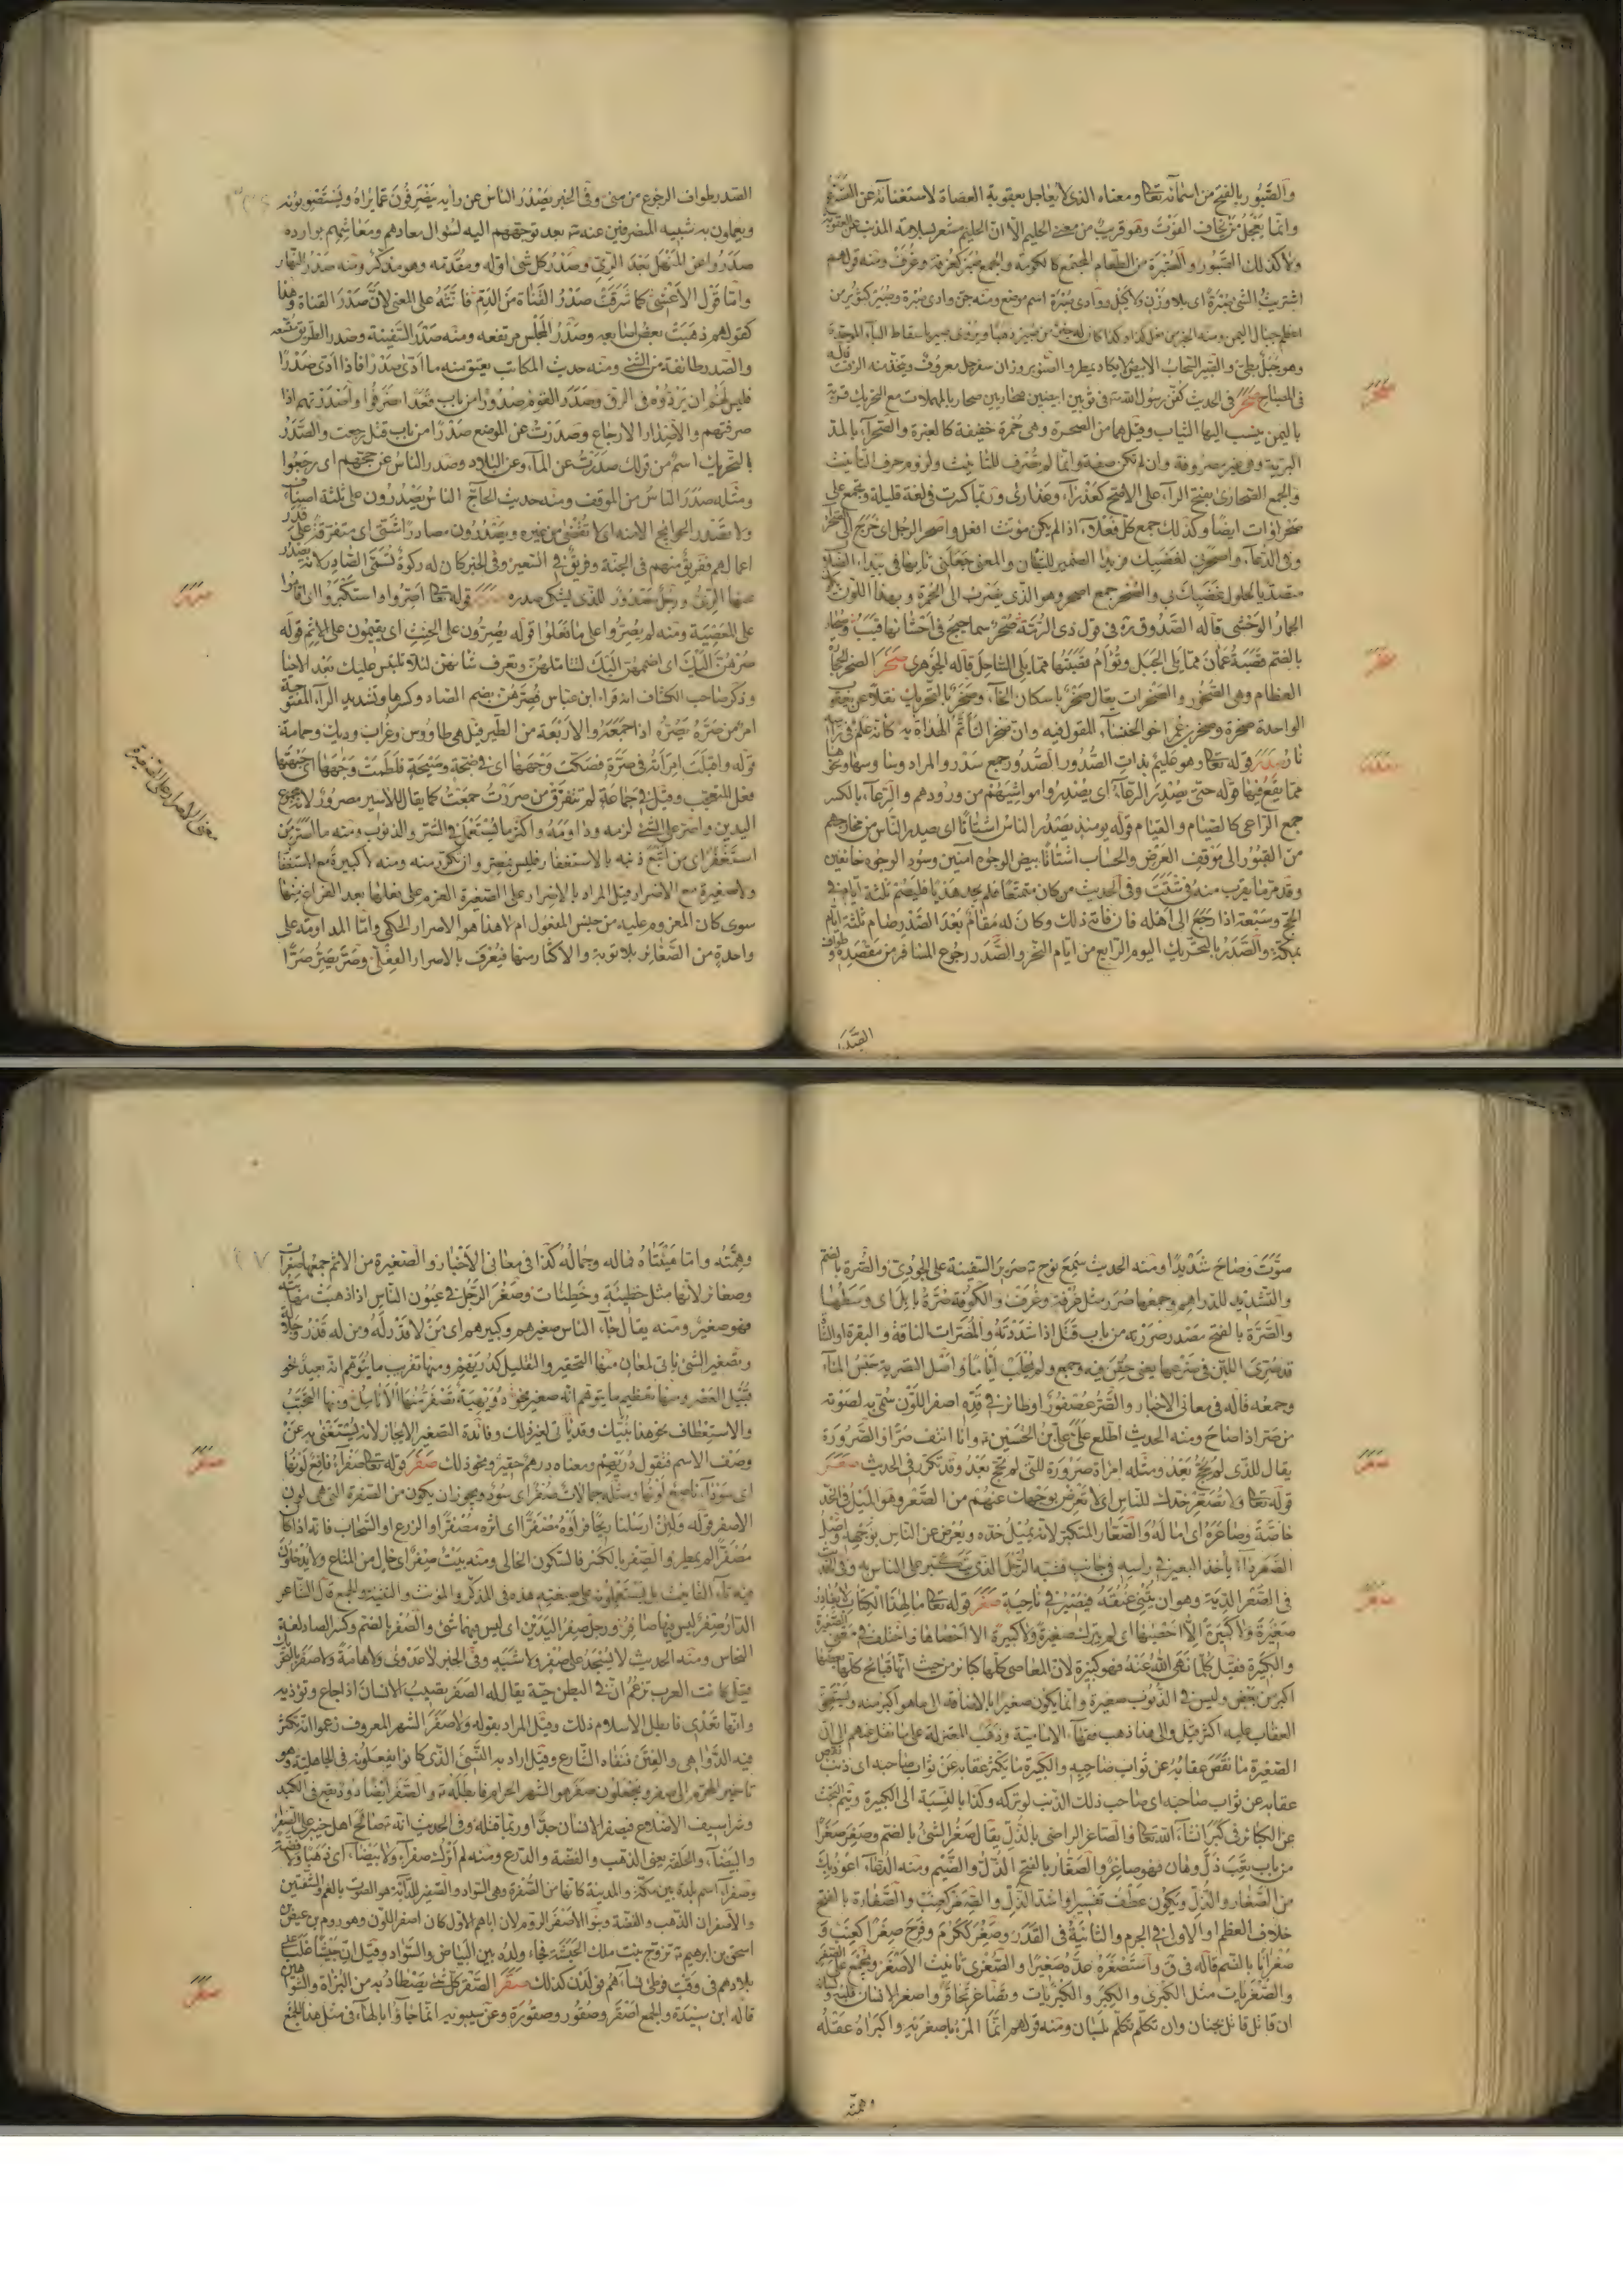 والصبور بالفتح من اسمائه تعالى ومعناه الذي لا يعاجل بعقوبة العصاة لاستغنائه عن التسرع
وانما يعجل من يخاف الفوت وهو قريب من معنى الحليم الا ان الحليم مشعر بسلامة المذنب عن العقوبة
ولا كذلك الصبور والصبرة من الطعام المجتمع كالكومة والجمع صبر كغرفة وغرف ومنه قولهم
اشتريت الشئ صبرة اى بلا وزن ولا كيل ووادى صبرة اسم موضع
وهو جبل بطئ والصبير السحاب الابيض لا يكاد يمطر والصنوبر وزان سفرجل معروف ويتخذ منه الزفت قاله
فى المصباح صحر فى الحديث كفن رسول الله فى ثوبين ابيضين صحاريين صحار بالمهملات مع التحريك قرية
باليمن ينسب اليها الثياب وقيل هما من الصحرة وهى حمرة خفيفة كالغبرة والصحراء بالمد
البرية وهى غير مصروفة وان لم تكن صفة وانما لم تصرف للتانيث ولزوم حرف التانيث
والجمع الصحارى بفتح الراء على الافصح كعذراء وعذارى وربما كسرت فى لغة قليلة ويجمع على
صحراوات ايضا وكذلك جمع كل فعلاء اذا لم يكن مؤنث افعل واصحر الرجل اى خرج الى الصحراء
الحمار الوحشى قاله الصدوق ره فى قول ذى الرمة صحر سماحيج فى احشائها قبب وصحار
بالضم قصبة عمان مما يلى الجبل وتوأم قصبتها مما يلى الساحل قاله الجوهرى صخر الصخر الحجارة
العظام وهى الصخور والصخرات يقال صخر باسكان الخاء وصخر بالتحريك نقلا عن يعقوب
الواحدة صخرة وصخر بن عمرو اخو الخنساء المقول فيه وان صخرا لتأتم الهداة به كانه علم فى راسه
نار صدر قوله تعالى وهو عليم بذات الصدور الصدور جمع صدر والمراد وساوسها ونحوها
مما يقع فيها قوله حتى يصدر الرعاء اى يصدروا مواشيهم من ورودهم والرعاء بالكسر
جمع الراعى كالصيام والقيام قوله يومئذ يصدر الناس اشتاتا اى يصدر الناس من مخارجهم
من القبور الى موقف العرض والحساب اشتاتا بيض الوجوه آمنين وسود الوجوه خائفين
وقد مر ما يقرب منه فى شتت وفى الحديث من كان متمتعا فلم يجد هديا فليصم ثلثة ايام فى
الحج وسبعة اذا رجع الى اهله فان فاته ذلك وكان له مقام بعد الصدر صام ثلثة ايام
بمكة والصدر بالتحريك اليوم الرابع من ايام النحر والصدر رجوع المسافر من مقصده وطواف
الصدر
الصدر طواف الرجوع من منى وفى الخبر يصدر الناس عن رايه يتصرفون عما يراه ويستصوبونه
ويعملون به شبيه المنصرفين عنه بعد توجههم اليه لسؤال معادهم ومعاشهم بوارده
صدروا عن المنهل بعد الرى وصدر كل شئ اوله ومقدمه وهو مذكر ومنه صدر النهار
واما قول الاعشى كما شرقت صدر القناة من الدم فانثه على المعنى لان صدر القناة
كقولهم ذهبت بعض اصابعه وصدر المجلس مرتفعه ومنه صدر السفينة وصدر الطريق متسعه
والصدر طائفة من الشئ ومنه حديث المكاتب يعتق منه ما ادى صدرا فاذا ادى صدرا
فليس لهم ان يردوه فى الرق وصدر القوم صدورا من باب قعد انصرفوا واصدرتهم اذا
صرفتهم والاصدار الارجاع وصدرت عن الموضع صدرا من باب قتل رجعت والصدر
بالتحريك اسم من قولك صدرت عن الماء وعن البلاد وصدر الناس عن حجهم اى رجعوا
ومثله صدر الناس من الموقف ومنه حديث الحاج الناس يصدرون على ثلثة اصناف
ولا تصدر الحوائج الا منه اى لا تقضى من غيره ويصدرون مصادر شتى اى متفرقة على قدر
اعمالهم ففريق منهم فى الجنة وفريق فى السعير وفى الخبر كان له ركوة تسمى الصادر لانه يصدر
عنها الرى ورجل مصدور للذى يشتكى صدره صرر قوله تعالى اصروا واستكبروا اى اقاموا
على المعصية ومنه لم يصروا على ما فعلوا قوله يصرون على الحنث اى يقيمون على الاثم قوله
صرهن اليك اى اضممهن اليك لتتاملهن وتعرف شانهن لئلا تلتبس عليك بعد الاحياء
وذكر صاحب الكشاف انه قراء ابن عباس فصرهن بضم الصاد وكسرها وتشديد الراء المفتوحة
امر من صره يصره اذا جمعه والاربعة من الطير قيل هى طاووس وغراب وديك وحمامة
قوله واقبلت امراته فى صرة فصكت وجهها اى فى ضجة وصيحة فلطمت وجهها اى جبهتها
فعل المتعجب وقيل فى جماعة لم تتفرق من صررت جمعت كما يقال للاسير مصرور لانه مجموع
اليدين واصر على الشئ لزمه وداومه واكثر ما يستعمل فى الشر والذنوب ومنه ما اصر من
استغفر اى من اتبع ذنبه بالاستغفار فليس بمصر وان تكرر منه ومنه لا كبيرة مع الاستغفار
ولا صغيرة مع الاصرار قيل المراد بالاصرار على الصغيرة العزم على فعلها بعد الفراغ منها
سوى كان المعزوم عليه من جنس المفعول ام لا هذا هو الاصرار الحكمى واما المداومة على
واحدة من الصغائر بلا توبة والاكثار منها فيعرف بالاصرار الفعلى وصر يصر صرا
معنى الاصرار على الصغيرة
صحر
صخر
صدر
صرر
صوت وصاح شديدا ومنه الحديث سمع نوح صرير السفينة على الجودى والصرة بالضم
والتشديد للدراهم وجمعها صرر مثل غرفة وغرف
والصرة بالفتح مصدر صررته من باب قتل اذا شددته والمصراة الناقة والبقرة او الشاة
قد صرى اللبن فى ضرعها يعنى حقن فيه وجمع ولم يحلب اياما واصل التصرية حبس الماء
وجمعه قاله فى معانى الاخبار والصر عصفور او طائر فى قده اصفر اللون سمى به لصوته
من صر اذا صاح ومنه الحديث اطلع على على بن الحسين وانا انتف صرا والصرورة
يقال للذى لم يحج بعد ومثله امراة صرورة للتى لم تحج بعد وقد تكرر فى الحديث صعر
قوله تعالى ولا تصعر خدك للناس اى لا تعرض بوجهك عنهم من الصعر وهو الميل فى الخد
خاصة وصاعره اى اماله والصعار المتكبر لانه يميل خده ويعرض عن الناس بوجهه واصل
الصعر داء ياخذ البعير فى راسه فى جانب فشبه الرجل الذى يتكبر على الناس به
فى الصعر الدية وهو ان يثنى عنقه فيصير فى ناحية صغر قوله تعالى ما لهذا الكتاب لا يغادر
صغيرة ولا كبيرة الا احصيها اى لم يترك صغيرة ولا كبيرة الا احصاها واختلف فى معنى الصغيرة
والكبيرة فقيل كلما نهى الله عنه فهو كبيرة لان المعاصى كلها كبائر من حيث انها قبائح كلها بعضها
اكبر من بعض وليس فى الذنوب صغيرة وانما يكون صغيرا بالاضافة الى ما هو اكبر منه ويستحق
العقاب عليه اكثر قيل والى هذا ذهب الامامية وذهب المعتزلة على ما نقل عنهم الى ان
الصغيرة ما نقص عقابه عن ثواب صاحبه والكبيرة ما يكثر عقابه عن ثواب صاحبه اى ذنب نقص
عقابه عن ثواب صاحبه اى صاحب ذلك الذنب لو تركه وكذا بالنسبة الى الكبيرة ويتم البحث
عن الكبائر فى كبر انشاء الله تعالى والصاغر الراضى بالذل يقال صغر الشئ بالضم وصغر صغرا
من باب تعب ذل وهان فهو صاغر والصغار بالفتح الذل والضيم ومنه الدعاء اعوذ بك
من الصغار والذل ويكون عطف تفسير او اشد الذل والصغر كعنب والصغارة بالفتح
خلاف العظم او الاولى فى الجرم والثانية فى القدر وصغر ككرم وفرح صغرا كعنب و
صغرانا بالضم قاله فى ق واستصغره عده صغيرا والصغرى تانيث الاصغر ويجمع على الصغر
والصغريات مثل الكبرى والكبر والكبريات وتصاغر تحاقر واصغر الانسان قلبه ولسانه
ان قاتل قاتل بجنان وان تكلم تكلم بلسان ومنه قولهم انما المرء باصغريه واكبراه عقله
وهمته
وهمته واما هيئتاه فماله وجماله كذا فى معانى الاخبار والصغيرة من الاثم جمعها صغيرات
وصغائر لانها مثل خطيئة وخطيئات وصغر الرجل فى عيون الناس اذا ذهبت مهابته
فهو صغير ومنه يقال جاء الناس صغيرهم وكبيرهم اى من لا قدر له ومن له قدر وجلالة
وتصغير الشئ ياتى لمعان منها التحقير والتقليل كدريهم ومنها تقريب ما يتوهم انه بعيد نحو
قبيل العصر ومنها تعظيم ما يتوهم انه صغير نحو دويهية تصفر منها الانامل ومنها التحبب
والاستعطاف نحو هذا بنيك وقد ياتى لغير ذلك وفائدة التصغير الايجاز لانه يستغنى به عن
وصف الاسم فتقول دريهم ومعناه درهم حقير ونحو ذلك صفر قوله تعالى صفراء فاقع لونها
اى سوداء ناصع لونها ومثله جمالات صفر اى سود ويجوز ان يكون من الصفرة التى هى لون
الاصفر قوله ولئن ارسلنا ريحا فراوه مصفرا اى اثره مصفرا او الزرع او السحاب فانه اذا كان
مصفرا لم يمطر والصفر بالكسر فالسكون الخالى ومنه بيت صفر اى خال من المتاع ولا يدخلون
فيه تاء التانيث بل يستعملونه على صيغته هذه فى المذكر والمؤنث والتثنية والجمع قال الشاعر
الدار صفر ليس فيها صافر ورجل صفر اليدين اى ليس فيهما شئ والصفر بالضم وكسر الصاد لغة
النحاس ومنه الحديث لا يسجد على صفر ولا شبه وفى الخبر لا عدوى ولا هامة ولا صفر بالتحريك
قيل كانت العرب تزعم ان فى البطن حية يقال له الصفر تصيب الانسان اذا جاع وتؤذيه
وانها تعدى فابطل الاسلام ذلك وقيل المراد بقوله ولا صفر الشهر المعروف زعموا انه يكثر
فيه الدواهى والفتن فنفاه الشارع وقيل اراد به النسئ الذى كانوا يفعلونه فى الجاهلية وهو
تاخير المحرم الى صفر ويجعلون صفر هو الشهر الحرام فابطله والصفر ايضا دود يقع فى الكبد
وشراسيف الاضلاع فيصفر الانسان جدا وربما قتله وفى الحديث انه صالح اهل خيبر على الصفراء
والبيضاء والحلقة يعنى الذهب والفضة والدرع ومنه لم اترك صفراء ولا بيضاء اى ذهبا ولا فضة
وصفراء اسم بلدة بين مكة والمدينة كانها من الصفرة وهى السواد والصفير للدابة هو الصوت بالفم والشفتين
والاصفران الذهب والفضة وبنو الاصفر الروم لان اباهم الاول كان اصفر اللون وهو روم بن عيص بن
اسحق بن ابرهيم تزوج بنت ملك الحبشة فجاء ولده بين البياض والسواد وقيل ان جيشا غلب على
بلادهم فى وقت فوطئ نساءهم فولدن كذلك صقر الصقر كل شئ يصطاد به من البزاة والشواهين
قاله ابن سيدة والجمع اصقر وصقور وصقورة وعن سيبويه انما جاؤا بالهاء فى مثل هذا الجمع
صعر
صغر
صفر
صقر